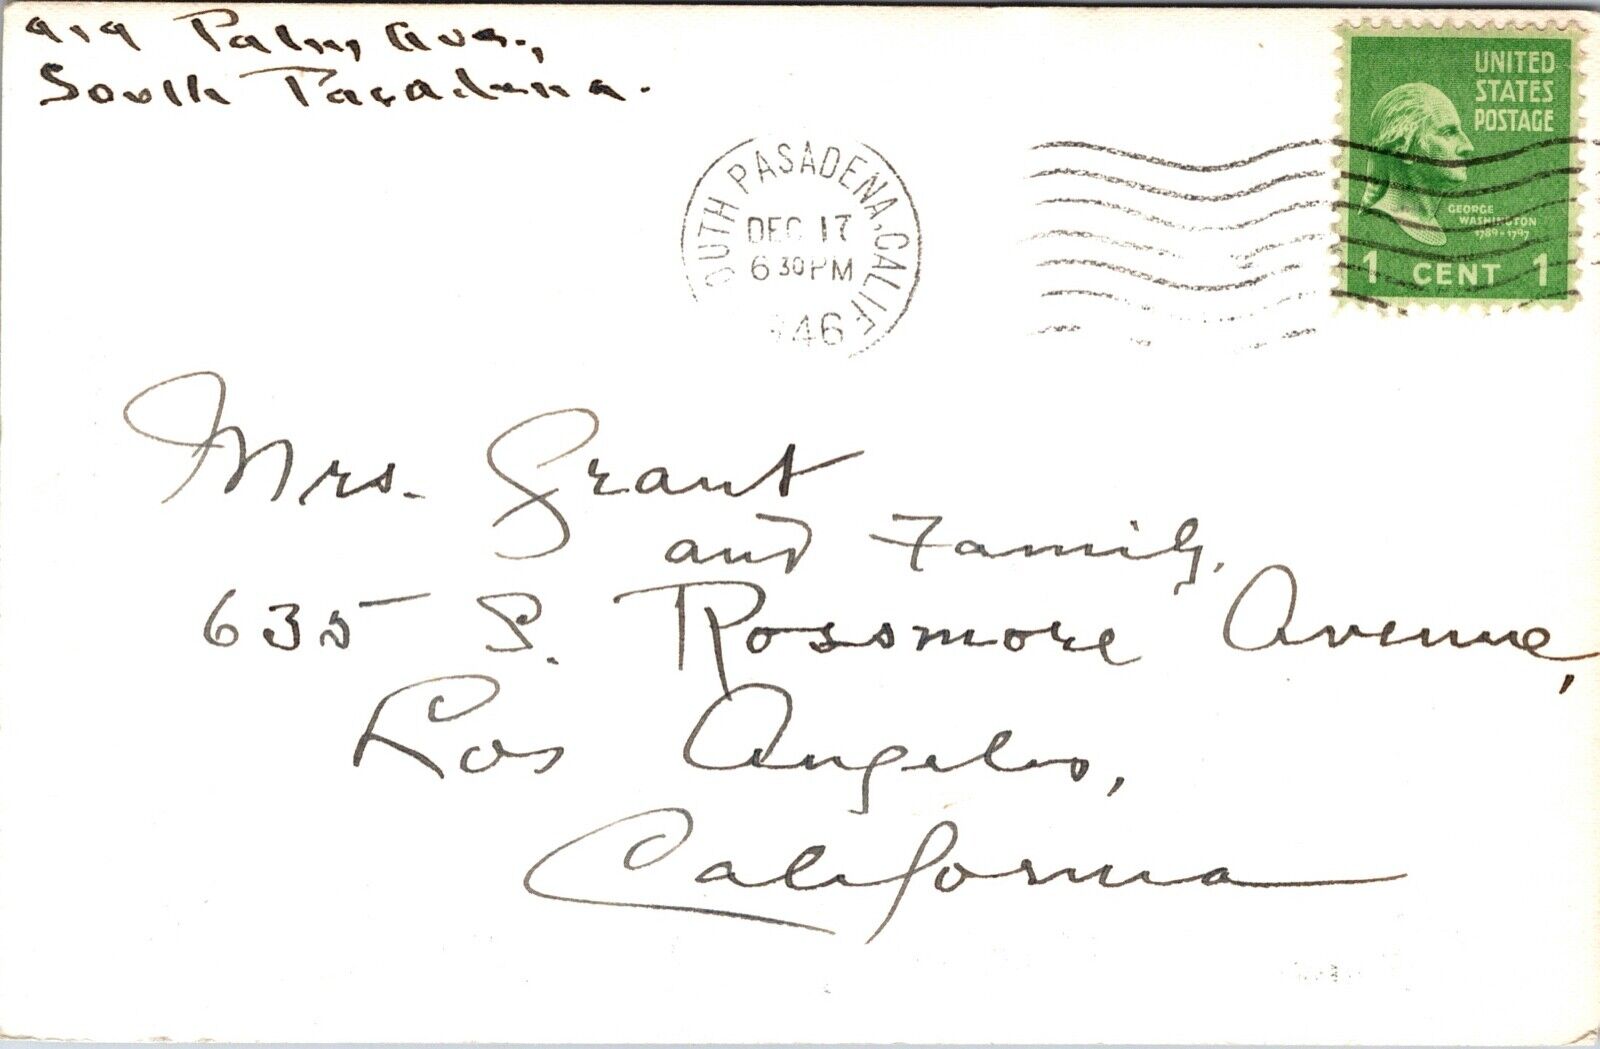 919 Palm Ave.,
South Pasadena.
SOUTH PASADENA, CALIF
DEC 17
6 30 PM
1946
UNITED
STATES
POSTAGE
GEORGE
WASHINGTON
1789-1797
1 CENT 1
Mrs. Grant
and Family,
635 S. Rossmore Avenue,
Los Angeles,
California